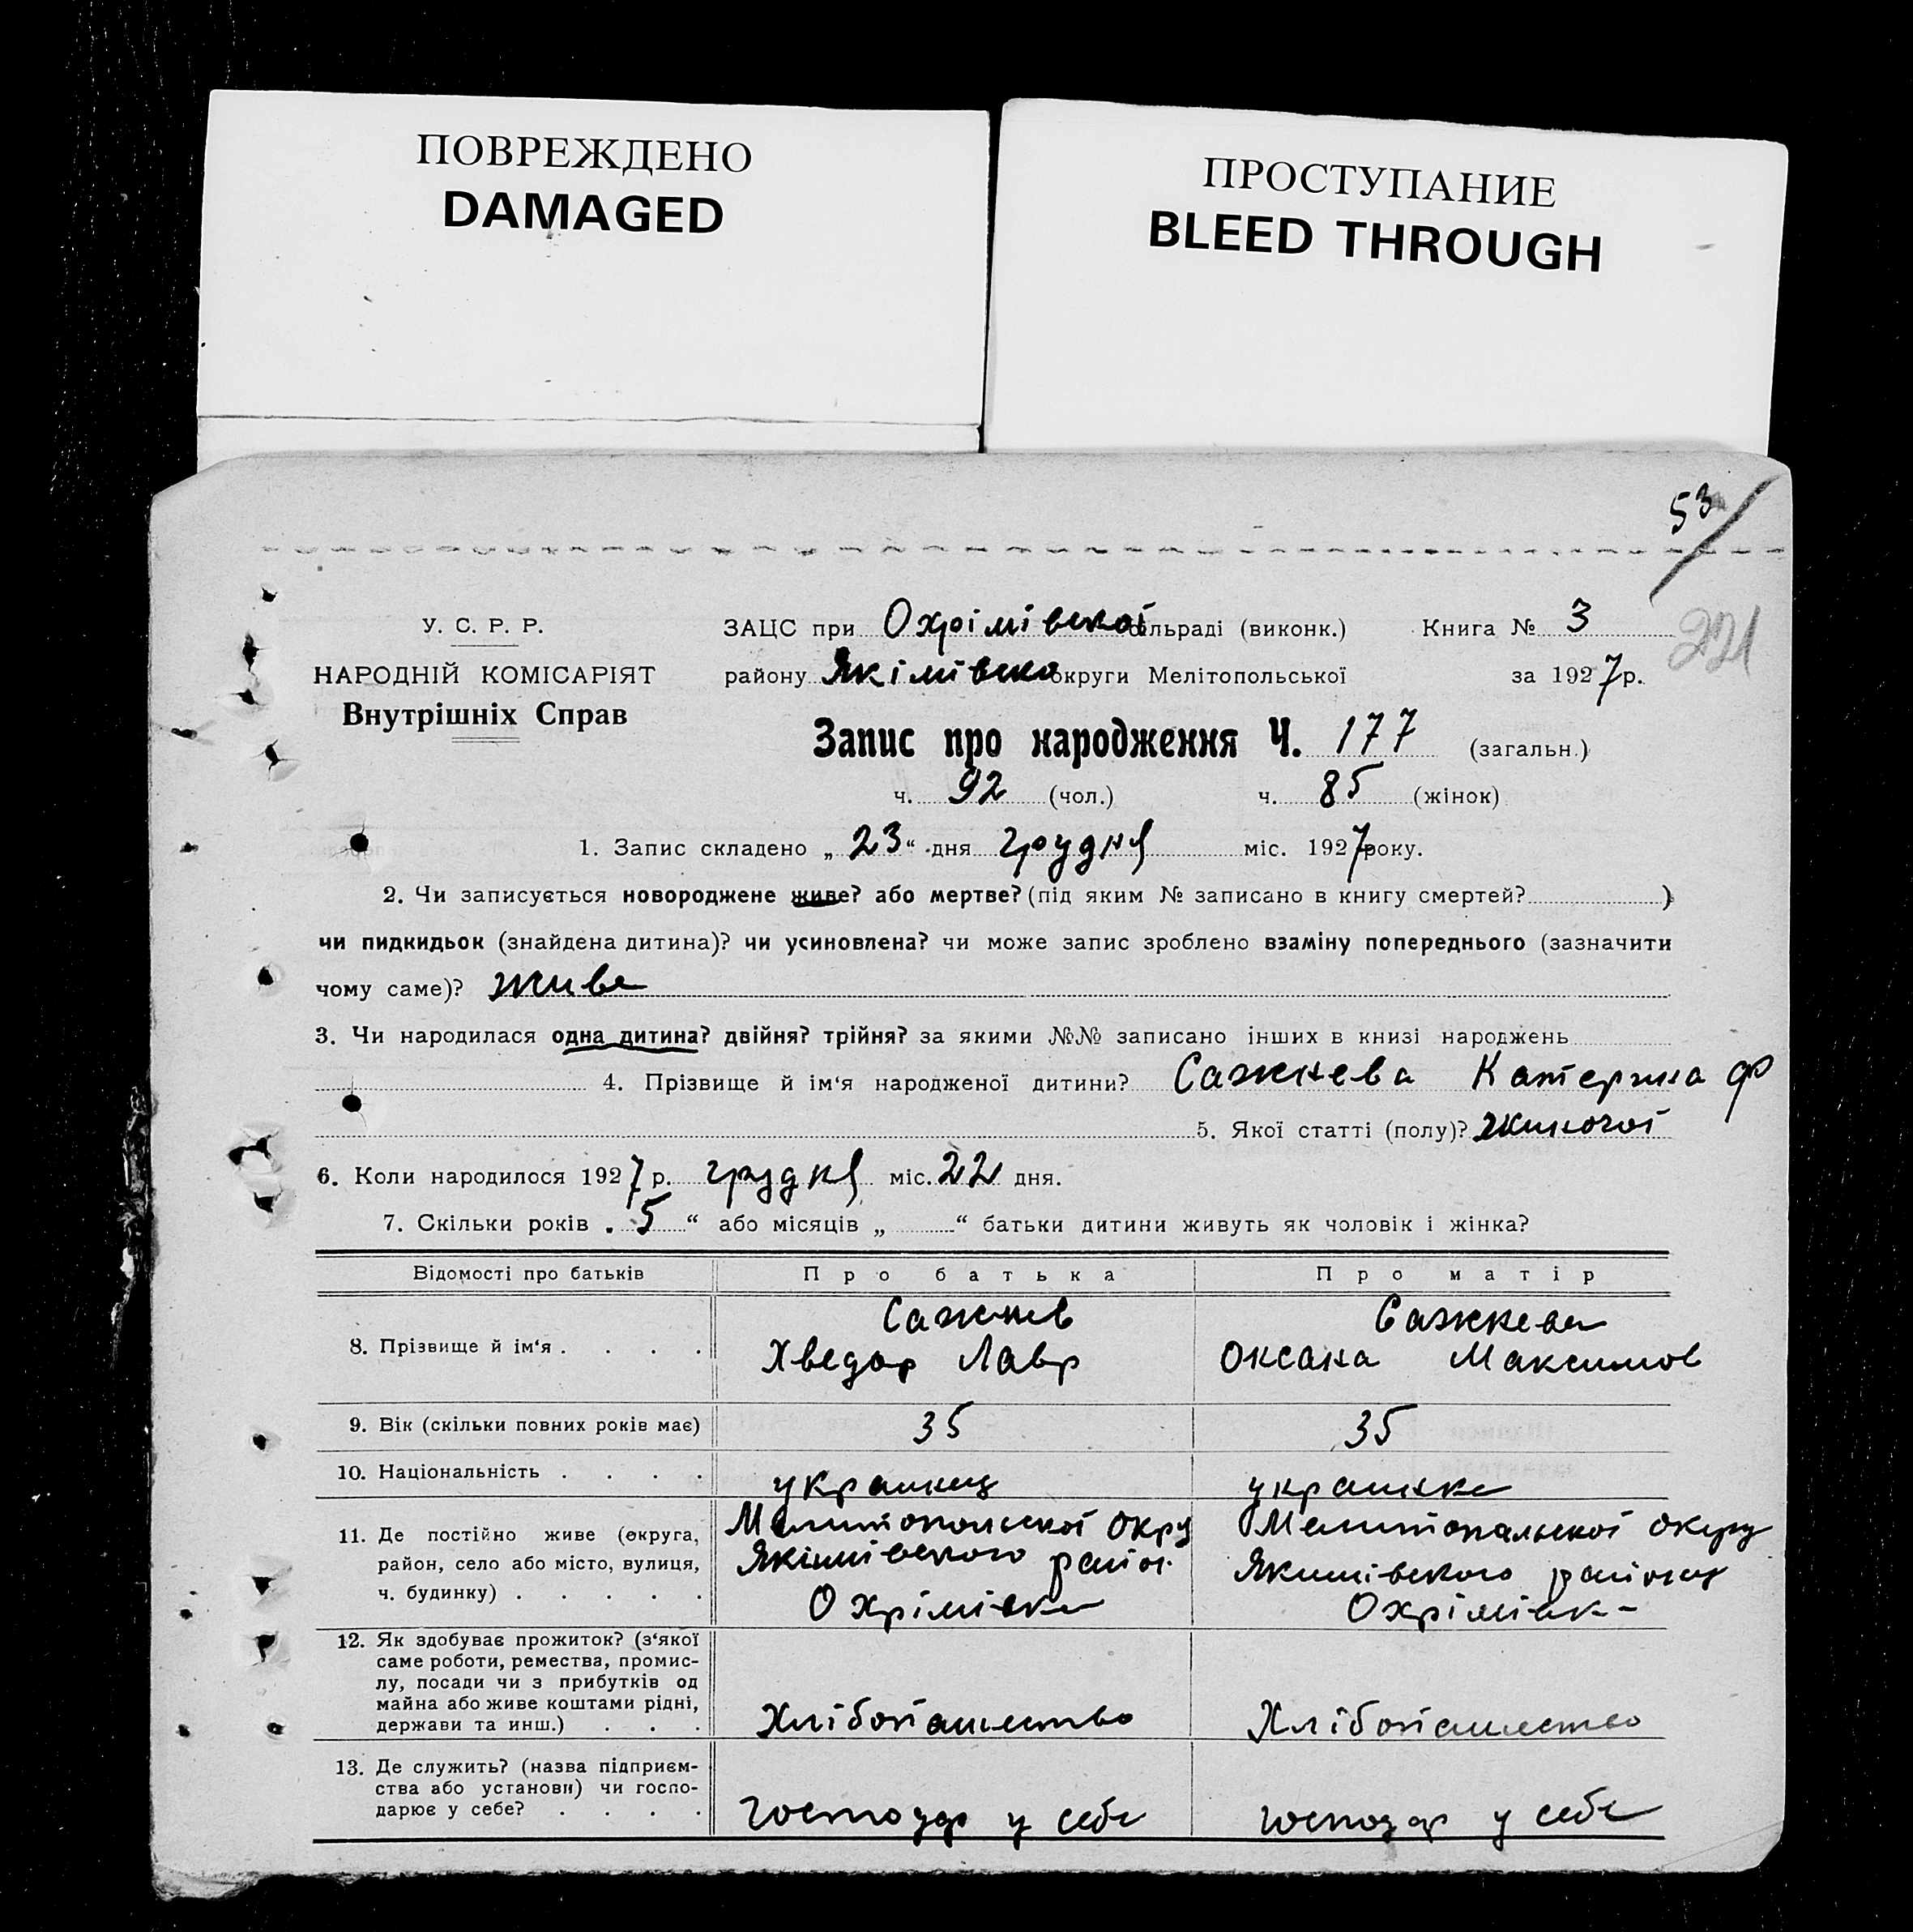 ПОВРЕЖДЕНО
DAMAGED
ПРОСТУПАНИЕ
BLEED THROUGH
53
221
У. С. Р. Р.
НАРОДНІЙ КОМІСАРІЯТ
Внутрішніх Справ
ЗАЦС при Охрімівскої сільраді (виконк.) Книга № 3
району Якімівско округи Мелітопольської за 1927 р.
Запис про народження Ч. 177 (загальн.)
ч. 92 (чол.) ч. 85 (жінок)
1. Запис складено „ 23 “ дня грудня міс. 1927 року.
2. Чи записується новороджене живе? або мертве? (під яким № записано в книгу смертей? )
чи пидкидьок (знайдена дитина)? чи усиновлена? чи може запис зроблено взаміну попереднього (зазначити
чому саме)? живе
3. Чи народилася одна дитина? двійня? трійня? за якими №№ записано інших в книзі народжень
4. Прізвище й ім‘я народженої дитини? Сажнева Катерина Ф
5. Якої статті (полу)? жиночої
6. Коли народилося 1927 р. грудня міс. 22 дня.
7. Скільки років „ 5 “ або місяців „ “ батьки дитини живуть як чоловік і жінка?
Відомості про батьків Про батька Про матір
8. Прізвище й ім‘я . . . . Сажнев Хведор Лавр Сажнева Оксана Максимов
9. Вік (скільки повних років має) 35 35
10. Національність . . . . украинец украинка
11. Де постійно живе (округа,
район, село або місто, вулиця,
ч. будинку) . . . . .
Мелитопольскої окру
Якимівского район
Охрімівка
Мелитопальскої округу
Якимівского району
Охрімівк-
12. Як здобуває прожиток? (з‘якої
саме роботи, ремества, промис-
лу, посади чи з прибутків од
майна або живе коштами рідні,
держави та инш.) . . .
Хлібопашество
Хлібопашество
13. Де служить? (назва підприєм-
ства або установи) чи госпо-
дарює у себе? . . . .
господар у себе
господар у себе